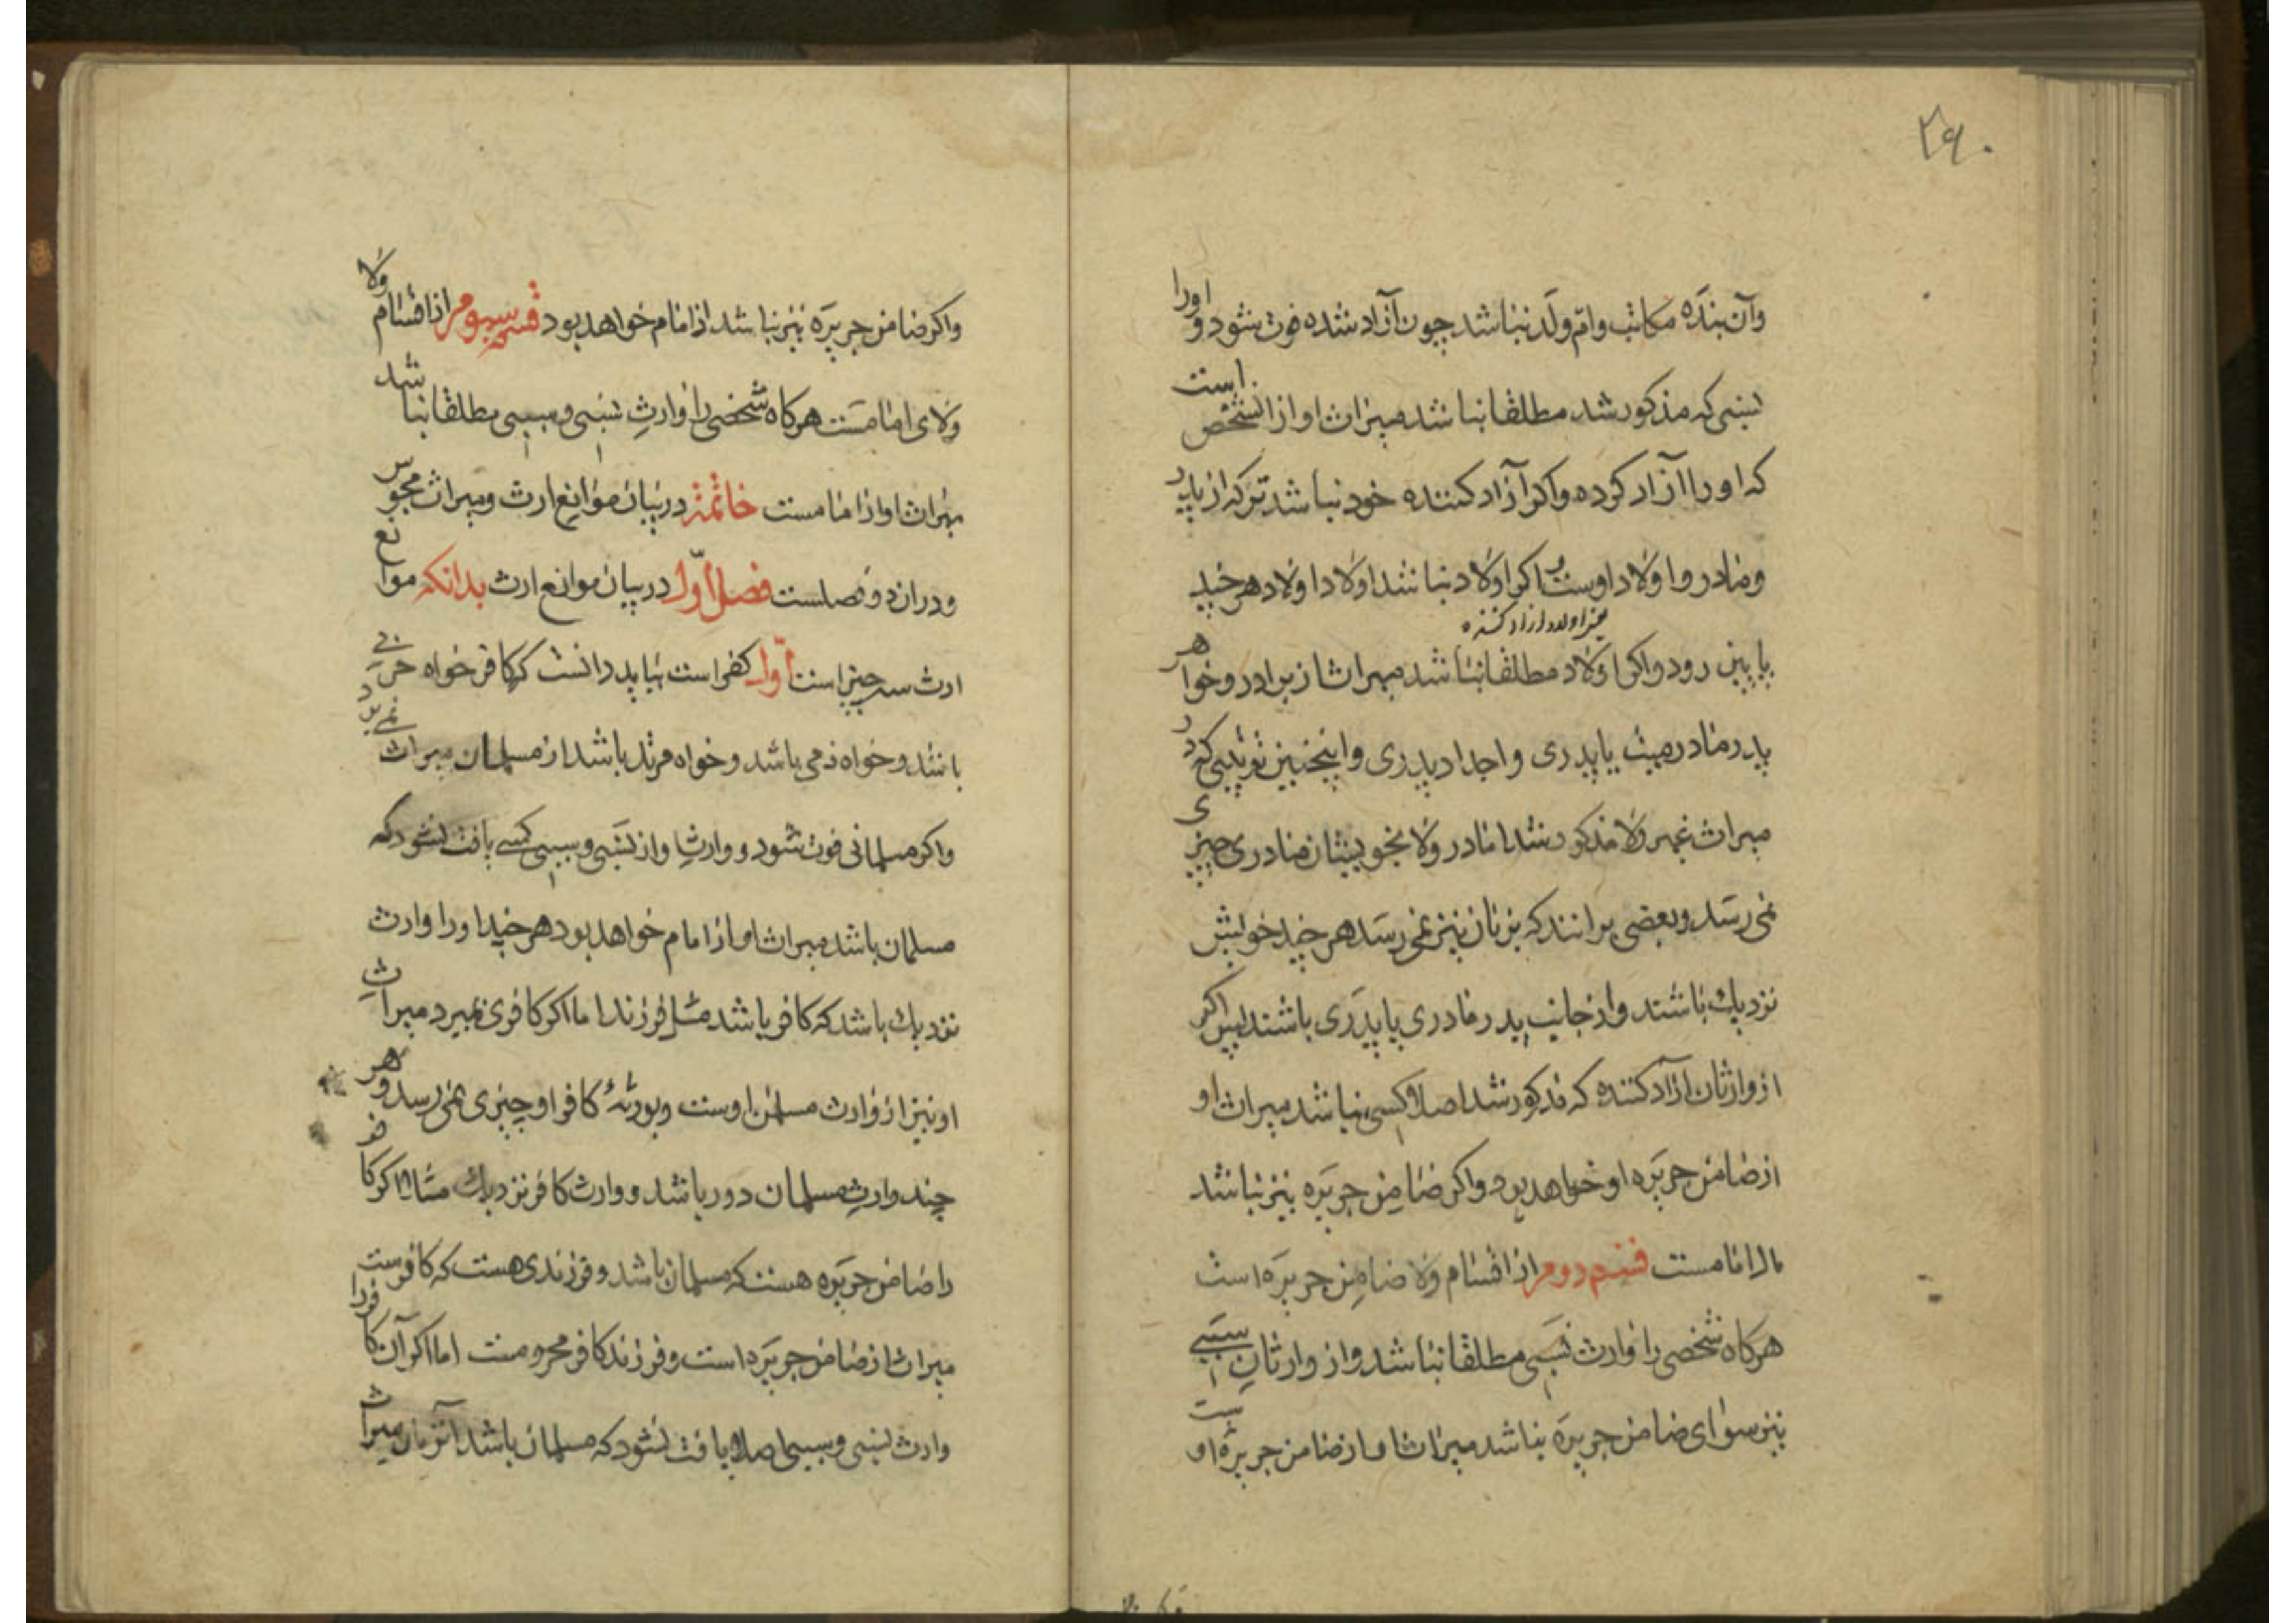 ۲۹۰
وآن بنده مکاتب وامّ ولد نباشد چون آزاد شده فوت شود و اورا
نسبی که مذکور شد مطلقا نباشد میراث او از انشخص است
که او را آزاد کرده واکر آزاد کننده خود نباشد ترکه از پدر
ومادر و اولاد اوست و اکر اولاد نباشد اولاد اولاد هر چند
یعنی اولاد ازاد کننده
پایین رود واکر اولاد مطلقا نباشد میراث از برادر و خواهر
پدر مادر میت یا پدری و اجداد پدری واینچنین ترتیبی که در
میراث غیر ولا مذکور شد اما در ولا بخویشان مادری چیزی
نمی رسد وبعضی برانند که بزنان نیز نمی رسد هر چند خویش
نزدیك باشند واز جانب پدر مادری یا پدری باشند پس اکر
از وارثان ازاد کننده که مذکور شد اصلا کسی نباشد میراث او
از ضامن جریره او خواهد بود واکر ضامن جریره نیز نباشد
مال امامست قسم دوم از اقسام ولا ضامن جریره است
هرکاه شخصی را وارث نسبی مطلقا نباشد واز وارثان سببی
نیز سوای ضامن جریره نباشد میراث او از ضامن جریرهٔ اوست
واکر ضامن جریره نیز نباشد از امام خواهد بود قسم سیوم از اقسام ولا
ولای امامست هرکاه شخصی را وارث نسبی و سببی مطلقا نباشد
میراث او از امامست خاتمه در بیان موانع ارث ومیراث مجوس
ودران دو فصلست فصل اوّل در بیان موانع ارث بدانکه موانع
ارث سه چیز است اوّل کفر است بباید دانست که کافر خواه حربی
باشد وخواه ذمی باشد و خواه مرتد باشد از مسلمان میراث نمی برد
واکر مسلمانی فوت شود و وارث او از نسبی و سببی کسی یافت نشود که
مسلمان باشد میراث او از امام خواهد بود هر چند اورا وارث
نزدیك باشد که کافر باشد مثل فرزند اما اکر کافری بمیرد میراث
او نیز از وارث مسلمان اوست وبورثهٔ کافر او چیزی نمی رسد و هر
چند وارث مسلمان دور باشد و وارث کافر نزدیك مثلا اکر کافر
را ضامن جریره هست که مسلمان باشد و فرزندی هست که کافرست
میراث از ضامن جریره است وفرزند کافر محرومست اما اکر آن کافر را
وارث نسبی وسببی اصلا یافت نشود که مسلمان باشد آنزمان میراث